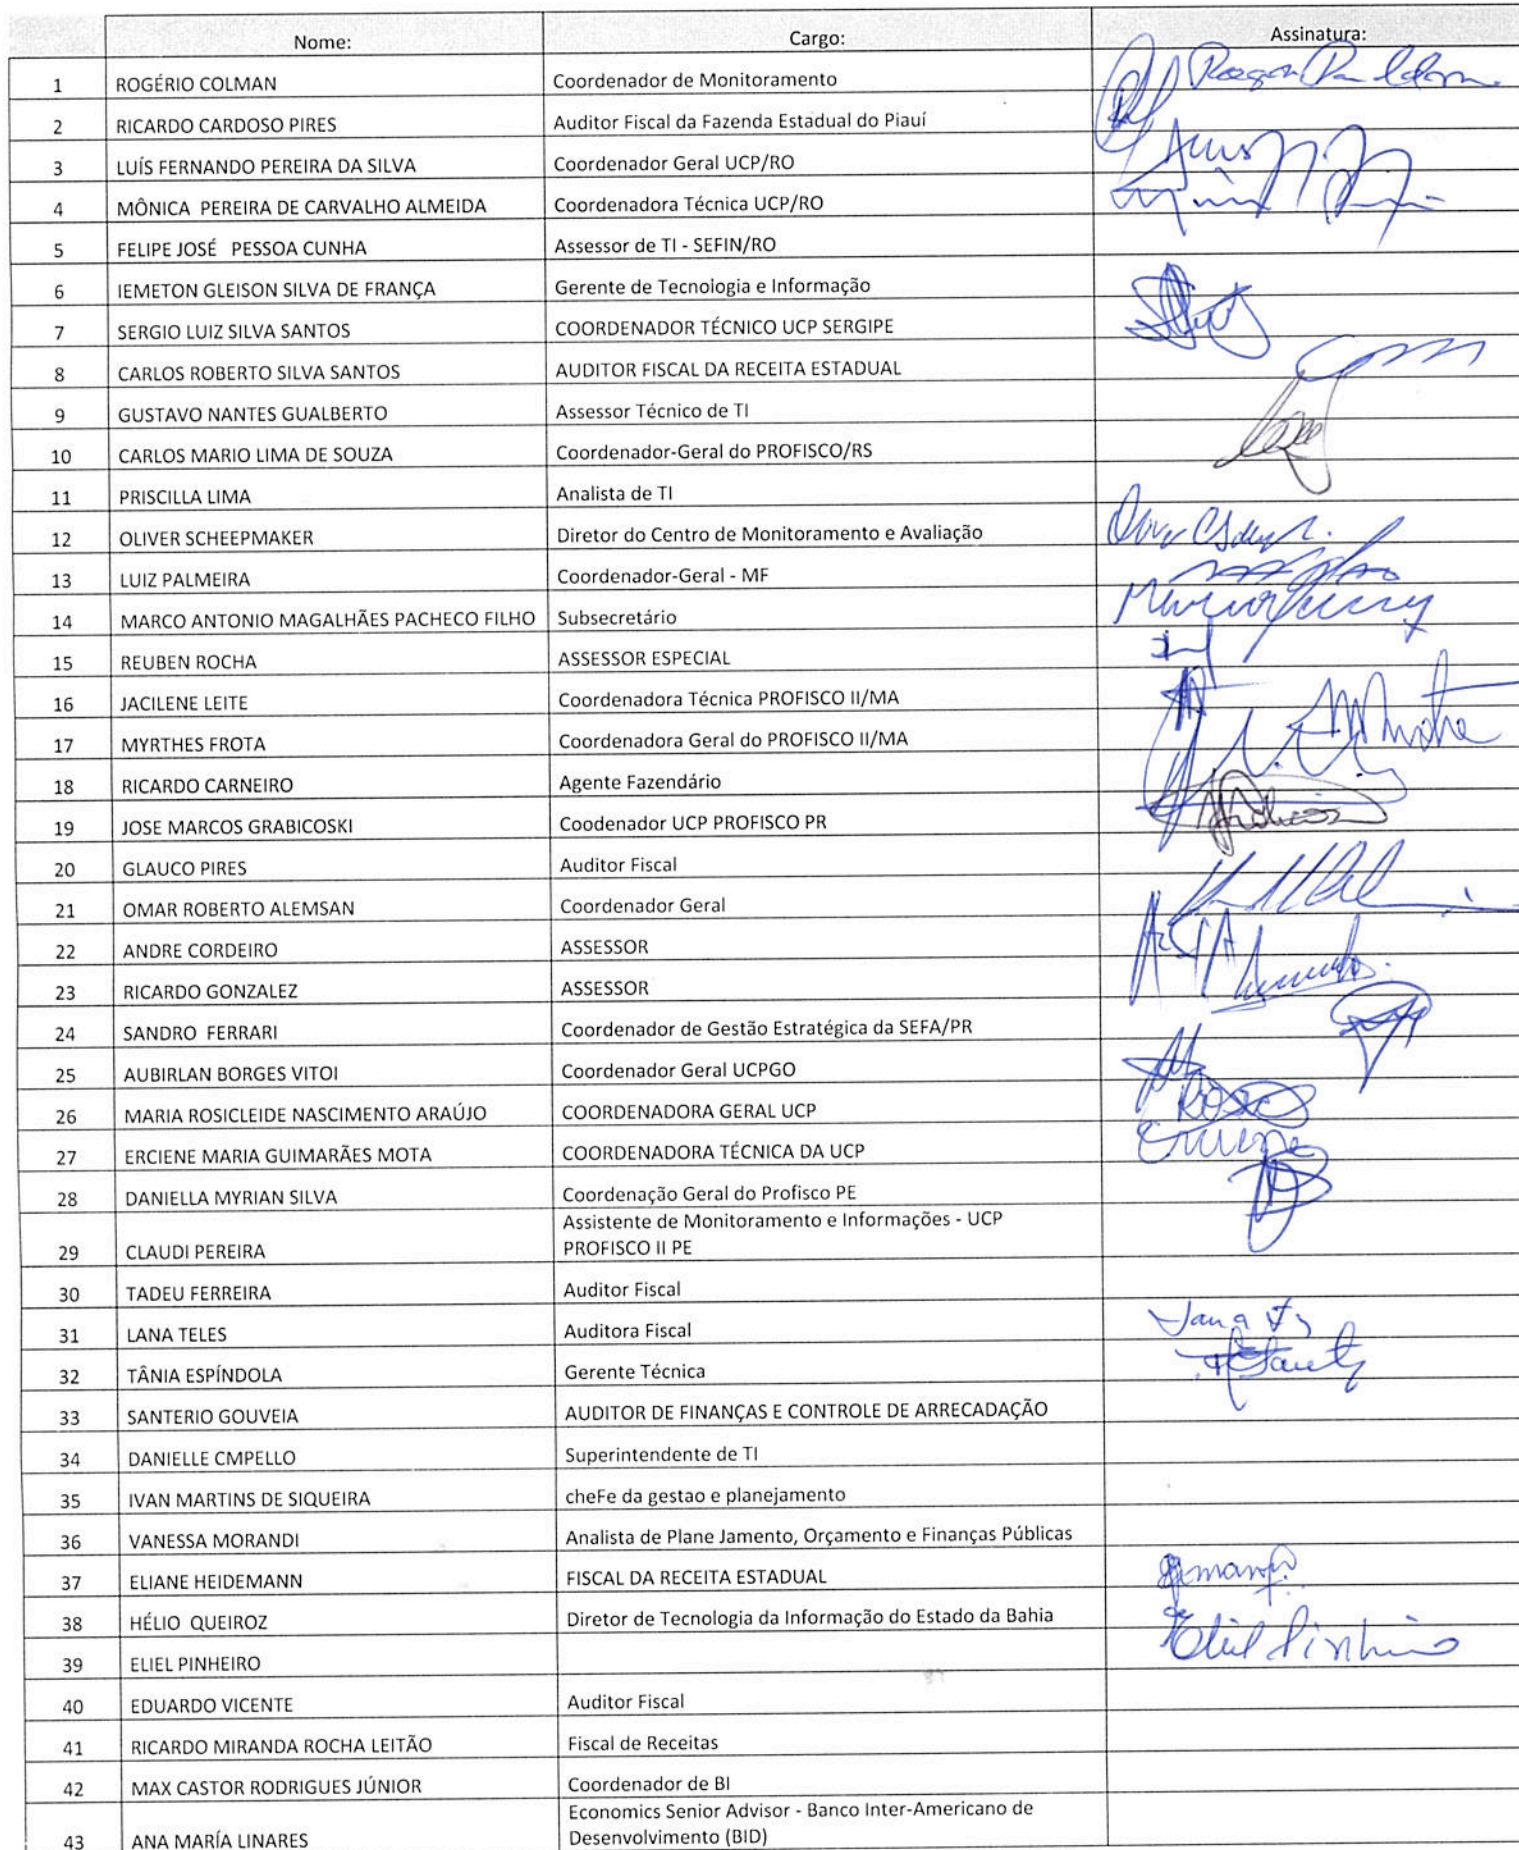 Nome: Cargo: Assinatura:
1 ROGÉRIO COLMAN Coordenador de Monitoramento
2 RICARDO CARDOSO PIRES Auditor Fiscal da Fazenda Estadual do Piauí
3 LUÍS FERNANDO PEREIRA DA SILVA Coordenador Geral UCP/RO
4 MÔNICA PEREIRA DE CARVALHO ALMEIDA Coordenadora Técnica UCP/RO
5 FELIPE JOSÉ PESSOA CUNHA Assessor de TI - SEFIN/RO
6 IEMETON GLEISON SILVA DE FRANÇA Gerente de Tecnologia e Informação
7 SERGIO LUIZ SILVA SANTOS COORDENADOR TÉCNICO UCP SERGIPE
8 CARLOS ROBERTO SILVA SANTOS AUDITOR FISCAL DA RECEITA ESTADUAL
9 GUSTAVO NANTES GUALBERTO Assessor Técnico de TI
10 CARLOS MARIO LIMA DE SOUZA Coordenador-Geral do PROFISCO/RS
11 PRISCILLA LIMA Analista de TI
12 OLIVER SCHEEPMAKER Diretor do Centro de Monitoramento e Avaliação
13 LUIZ PALMEIRA Coordenador-Geral - MF
14 MARCO ANTONIO MAGALHÃES PACHECO FILHO Subsecretário
15 REUBEN ROCHA ASSESSOR ESPECIAL
16 JACILENE LEITE Coordenadora Técnica PROFISCO II/MA
17 MYRTHES FROTA Coordenadora Geral do PROFISCO II/MA
18 RICARDO CARNEIRO Agente Fazendário
19 JOSE MARCOS GRABICOSKI Coodenador UCP PROFISCO PR
20 GLAUCO PIRES Auditor Fiscal
21 OMAR ROBERTO ALEMSAN Coordenador Geral
22 ANDRE CORDEIRO ASSESSOR
23 RICARDO GONZALEZ ASSESSOR
24 SANDRO FERRARI Coordenador de Gestão Estratégica da SEFA/PR
25 AUBIRLAN BORGES VITOI Coordenador Geral UCPGO
26 MARIA ROSICLEIDE NASCIMENTO ARAÚJO COORDENADORA GERAL UCP
27 ERCIENE MARIA GUIMARÃES MOTA COORDENADORA TÉCNICA DA UCP
28 DANIELLA MYRIAN SILVA Coordenação Geral do Profisco PE
Assistente de Monitoramento e Informações - UCP
29 CLAUDI PEREIRA PROFISCO II PE
30 TADEU FERREIRA Auditor Fiscal
31 LANA TELES Auditora Fiscal
32 TÂNIA ESPÍNDOLA Gerente Técnica
33 SANTERIO GOUVEIA AUDITOR DE FINANÇAS E CONTROLE DE ARRECADAÇÃO
34 DANIELLE CMPELLO Superintendente de TI
35 IVAN MARTINS DE SIQUEIRA cheFe da gestao e planejamento
36 VANESSA MORANDI Analista de Plane Jamento, Orçamento e Finanças Públicas
37 ELIANE HEIDEMANN FISCAL DA RECEITA ESTADUAL
38 HÉLIO QUEIROZ Diretor de Tecnologia da Informação do Estado da Bahia
39 ELIEL PINHEIRO Eliel Pinheiro
40 EDUARDO VICENTE Auditor Fiscal
41 RICARDO MIRANDA ROCHA LEITÃO Fiscal de Receitas
42 MAX CASTOR RODRIGUES JÚNIOR Coordenador de BI
Economics Senior Advisor - Banco Inter-Americano de
43 ANA MARÍA LINARES Desenvolvimento (BID)